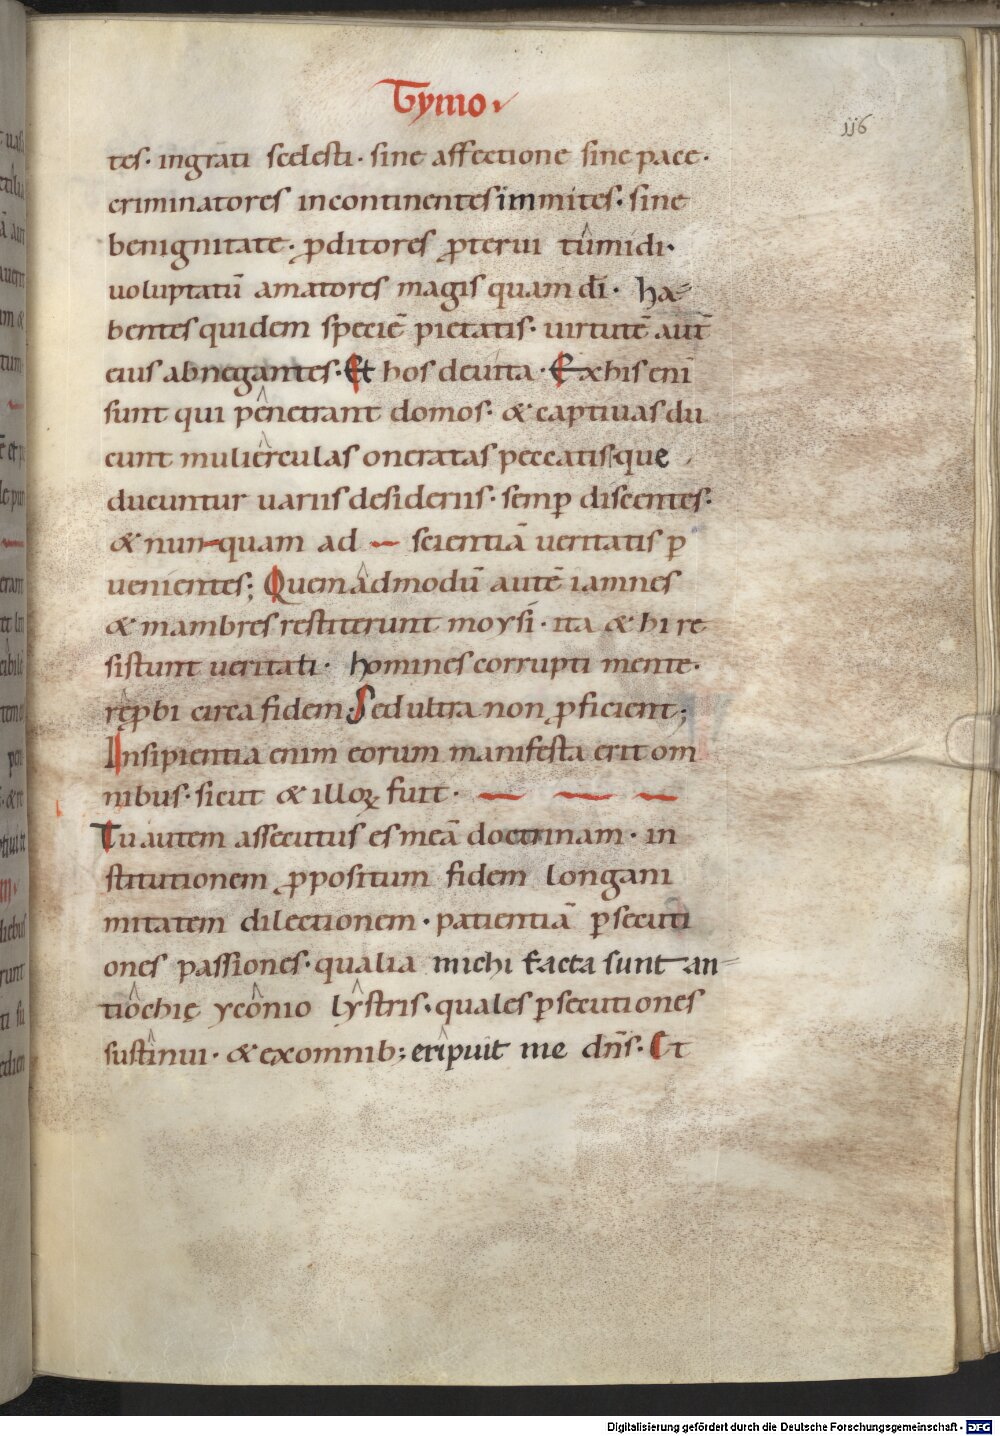 Tymo
116
tes· ingrati scelesti· sine affectione sine pace·
criminatores incontinentes immites· sine
benignitate· ꝓditores ꝓterui tumidi·
uoluptatū amatores magis quam dī· ha-
bentes quidem speciē pietatis· uirtutē autē
eius abnegantes· Et hos deuita· Ex his enī
sunt qui penetrant domos· & captiuas du
cunt mulierculas oneratas peccatis· que
ducuntur uariis desideriis· semꝑ discentes·
& nunquam ad scientiā ueritatis ꝑ
uenientes; Quemadmodū autē iamnes
& mambres restiterunt moysi· ita & hi re
sistunt ueritati· homines corrupti mente·
reꝓbi circa fidem· Sed ultra non ꝓficient;
Insipientia enim eorum manifesta erit om
nibus· sicut & illoꝝ fuit·
Tu autem assecutus es meā doctrinam· in
stitutionem ꝓpositum fidem longani
mitatem dilectionem· patientiā ꝑsecuti
ones passiones· qualia michi facta sunt an-
tiochię yconio lystris· quales ꝑsecutiones
sustinui· & ex omnib; eripuit me dn̄s· Et
Digitalisierung gefördert durch die Deutsche Forschungsgemeinschaft - DFG